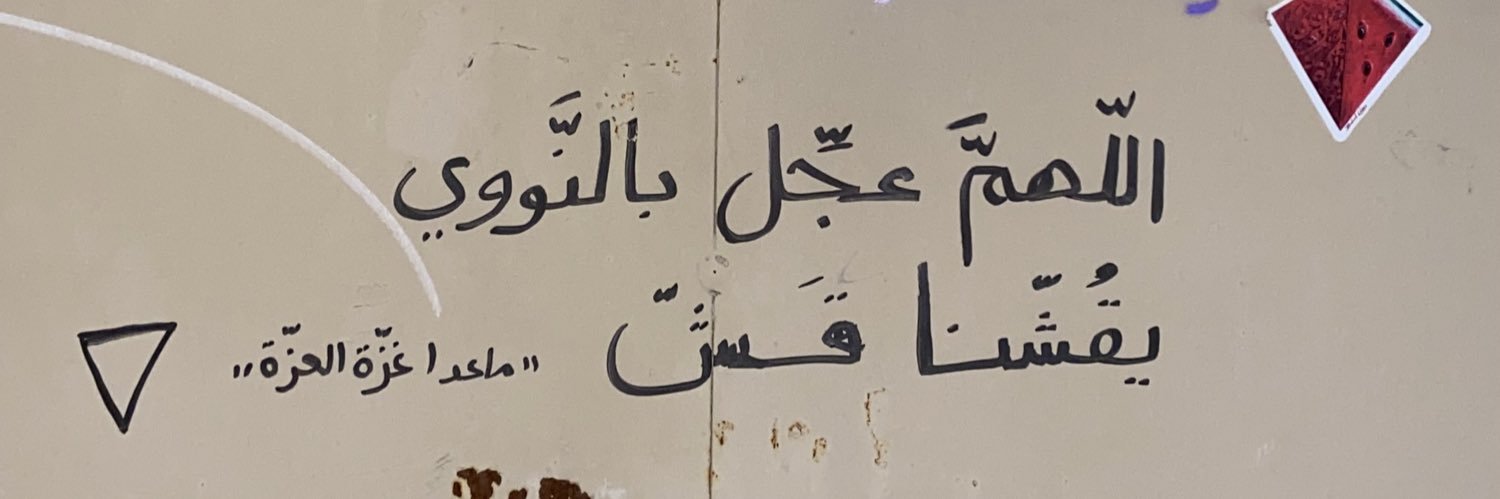 اللّهمَّ عجّل بالنَّووي
يقُشّنا قَشّ
"ماعدا غزّة العزّة"